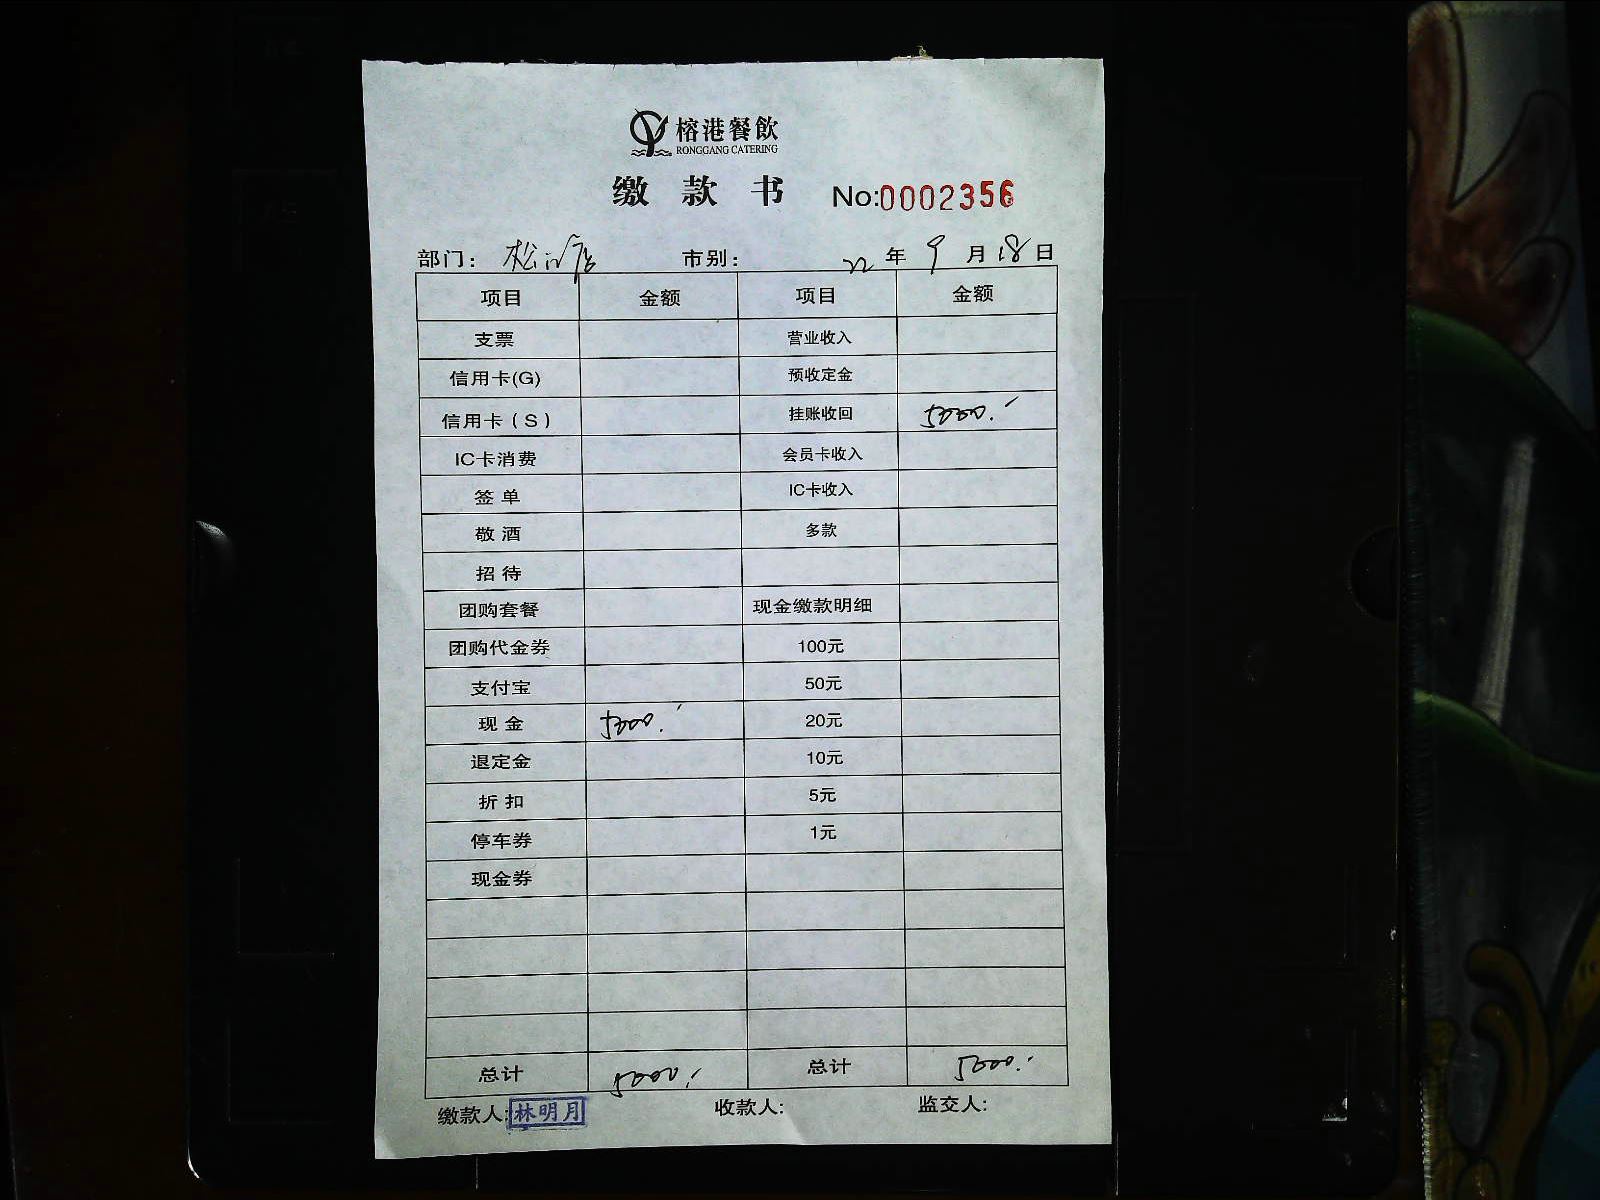 榕港餐飲
RONGGANG CATERING
缴款书 No:0002356
部门: 松江店 市别: 22年9月18日
项目 金额 项目 金额
支票 营业收入
信用卡(G) 预收定金
信用卡(S) 挂账收回 5000.
IC卡消费 会员卡收入
签单 IC卡收入
敬酒 多款
招待
团购套餐 现金缴款明细
团购代金券 100元
支付宝 50元
现金 5000. 20元
退定金 10元
折扣 5元
停车券 1元
现金券
总计 5000. 总计 5000.
缴款人: 林明月 收款人: 监交人: